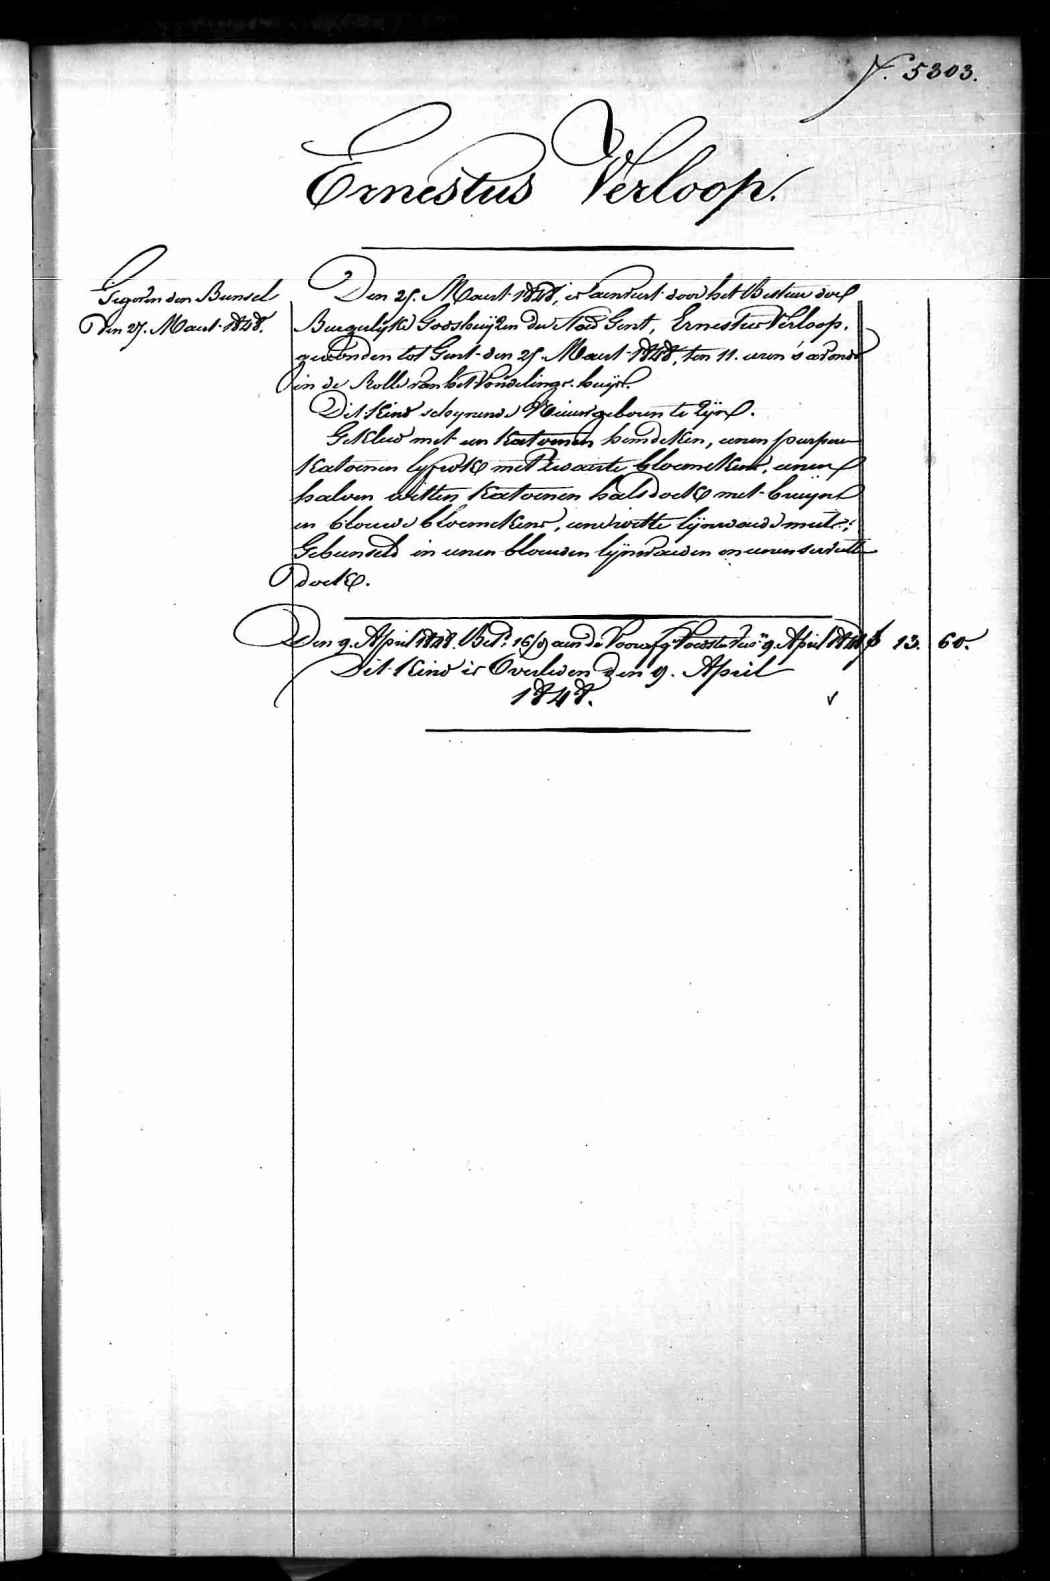 N. 5303.
Ernestus Verloop.
Gegeven den Bunsel
Den 27. Maart 1848.
Den 25. Maart 1848, is aenveert door het Bestuer der
Burgelyke Godshuyzen der Stad Gent, Ernestus Verloop.
gevonden tot Gent den 25. Maart 1848, ten 11. uren 's avonds
in de Rolle van het Vondelings-huys.
Dit Kind schynende Nieuwgeboren te Zyn.
Gekleed met een Katoenen hemdeken, eenen purpere
Katoenen lyfrok met zwarte bloemekens, eenen
halven witten Katoenen halsdoek met bruyne
en blouwe bloemekens, eene witte lynwaede muts:
Gebunseld in eenen blouwen lynwaeden en eenen serviette
doek.
Den 9. April 1848. Bet. 16/9 aen de Voorsz. Voedster tot 9. April 1848 f 13. 60.
Dit Kind is Overleden den 9. April
1848.